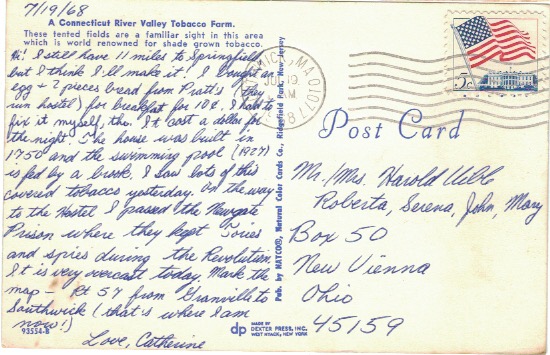 7/19/68
A Connecticut River Valley Tobacco Farm.
These tented fields are a familiar sight in this area
which is world renowned for shade grown tobacco.
Hi! I still have 11 miles to Springfield
but I think I'll make it! I bought an
egg + 2 pieces bread from Pratt's (they
run hostel) for breakfast for 10¢. I had to
fix it myself, tho. It cost a dollar for
the night. The house was built in
1750 and the swimming pool (1927)
is fed by a brook. I saw lots of this
covered tobacco yesterday. On the way
to the Hostel I passed the Newgate
Prison where they kept Tories
and spies during the Revolution.
It is very overcast today. Mark the
map - Rt 57 from Granville to
Southwick (that's where I am
now!)
Love, Catherine
93554-B
Pub. by NATCO®, Natural Color Cards Co., Ridgefield Park, New Jersey
dp
MADE BY
DEXTER PRESS, INC.
WEST NYACK, NEW YORK
MA 01077
JUL 19
AM
5c
Post Card
Mr./Mrs. Harold
Roberta, Serena, John, Mary
Box 50
New Vienna
Ohio
45159